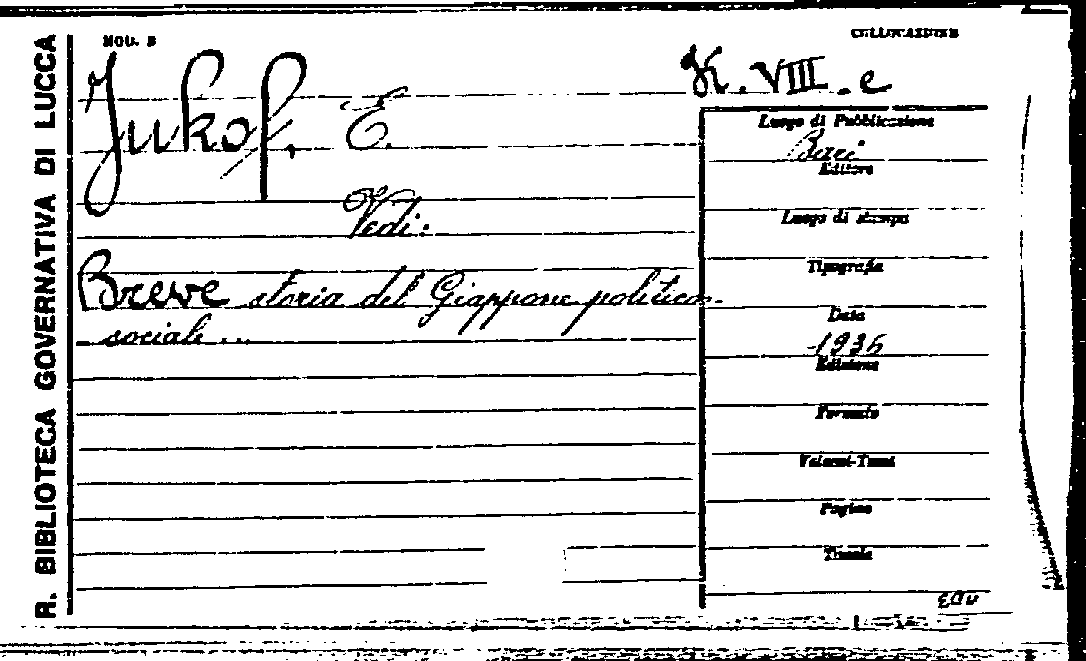 R. BIBLIOTECA GOVERNATIVA DI LUCCA
MOD. B
COLLOCAZIONE
K. VIII. e
Jukof, E.
Vedi:
Breve storia del Giappone politico-
sociale...
Luogo di Pubblicazione
Bari
Editore
Luogo di stampa
Tipografia
Data
1936
Edizione
Formato
Volumi-Tomi
Pagine